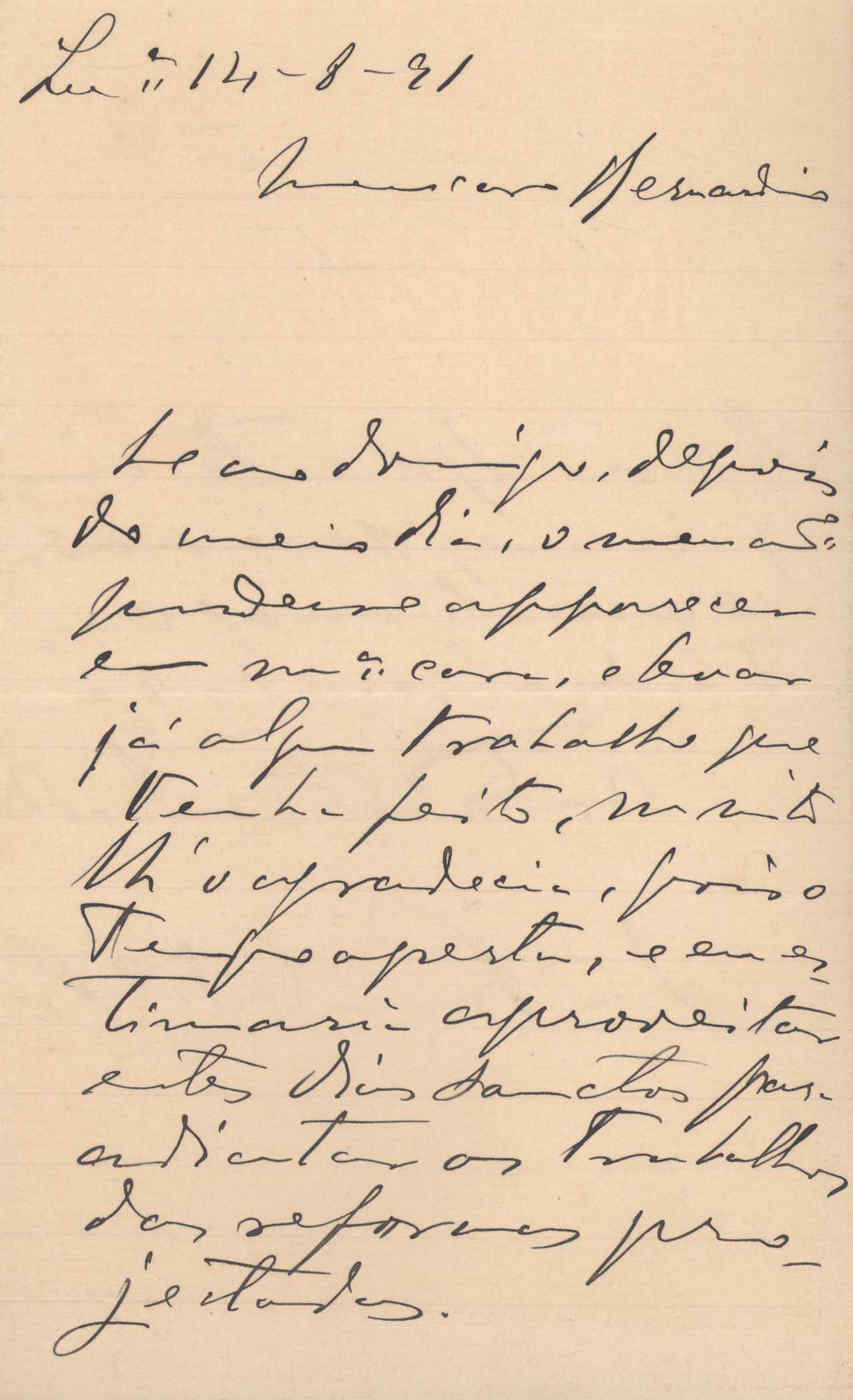 Lx.ª 14-8-91
Meu caro Bernardino
Se no domingo, depois
do meio dia, o meu am.º
podesse apparecer
em m.ª casa, e levar
já algum trabalho que
tenha feito, muito
lh'o agradecia, pois o
tempo aperta, e eu es-
timaria aproveitar
estes dias sanctos para
adiantar os trabalhos
das reformas pro-
jectadas.